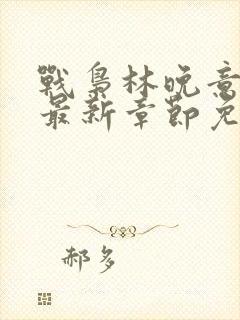 戰梟林晚意
最新章節免
郝多